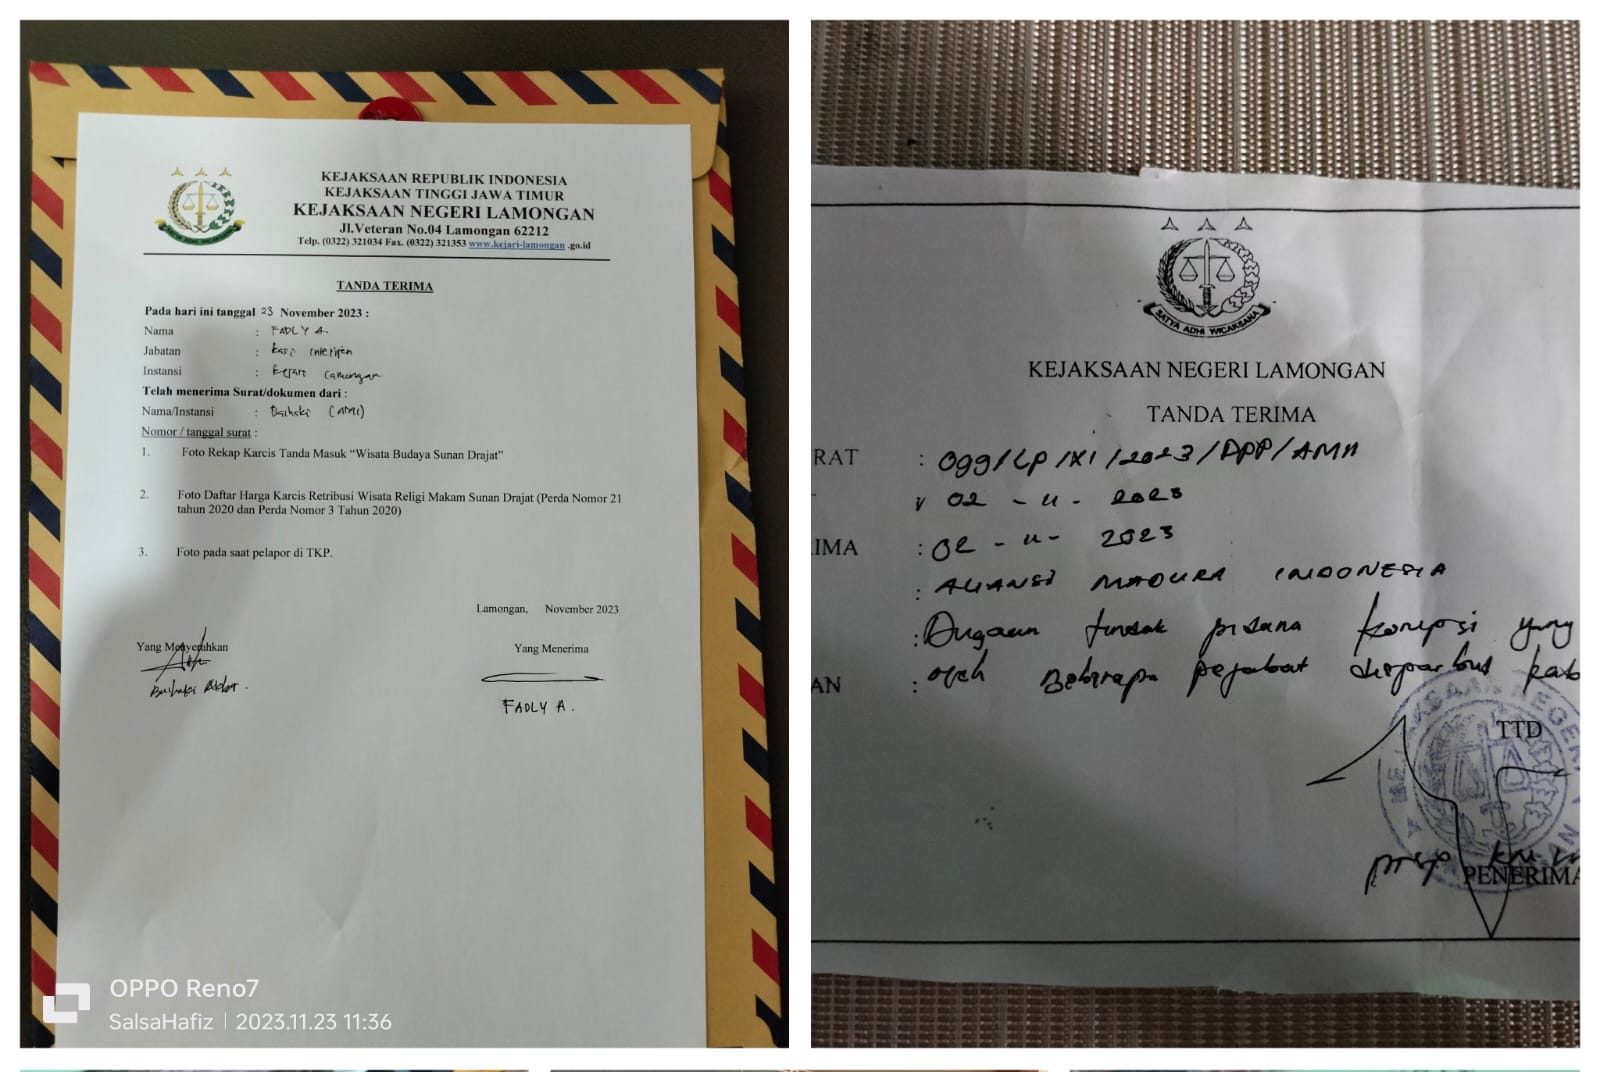 KEJAKSAAN REPUBLIK INDONESIA
KEJAKSAAN TINGGI JAWA TIMUR
KEJAKSAAN NEGERI LAMONGAN
Jl.Veteran No.04 Lamongan 62212
Telp. (0322) 321034 Fax. (0322) 321353 www.kejari-lamongan .go.id
TANDA TERIMA
Pada hari ini tanggal 23 November 2023 :
Nama : FADLY A.
Jabatan : Kasi Intelijen
Instansi : Kejari Lamongan
Telah menerima Surat/dokumen dari :
Nama/Instansi : Baihaki (AMI)
Nomor / tanggal surat :
1. Foto Rekap Karcis Tanda Masuk “Wisata Budaya Sunan Drajat”
2. Foto Daftar Harga Karcis Retribusi Wisata Religi Makam Sunan Drajat (Perda Nomor 21
tahun 2020 dan Perda Nomor 3 Tahun 2020)
3. Foto pada saat pelapor di TKP.
Lamongan, November 2023
Yang Menyerahkan Yang Menerima
Baihaki Akbar. FADLY A.
OPPO Reno7
SalsaHafiz | 2023.11.23 11:36
SATYA ADHI WICAKSANA
KEJAKSAAN NEGERI LAMONGAN
TANDA TERIMA
RAT : 099/LP/XI/2023/DPP/AMI
: 02 - 11 - 2023
IMA : 02 - 11 - 2023
: ALIANSI MADURA INDONESIA
: Dugaan tindak pidana korupsi yang
AN : oleh Beberapa pejabat disparbud kab
TTD
PENERIMA